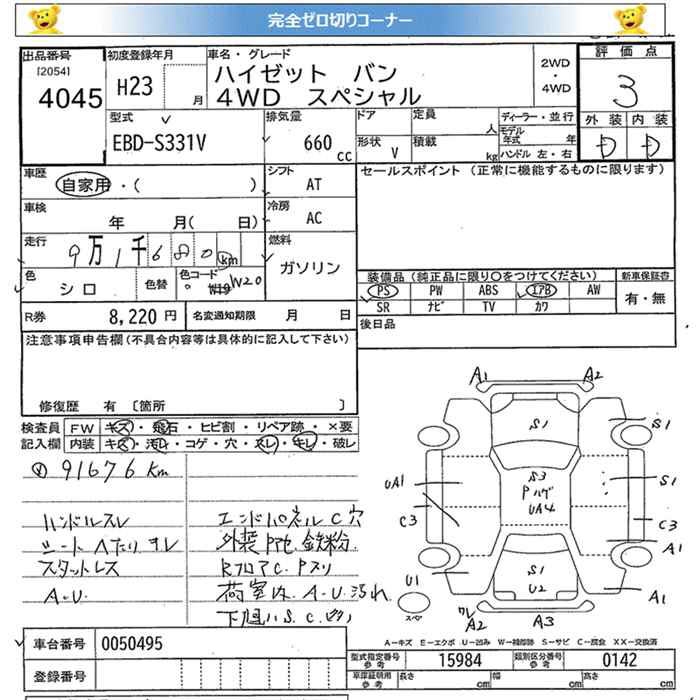 完全ゼロ切りコーナー
出品番号
[2054]
4045
初度登録年月
H23
月
車名・グレード
ハイゼット バン
4WD スペシャル
2WD
・
4WD
評価点
3
外装 内装
D D
型式
EBD-S331V
排気量
660
cc
ドア
定員
人
形状
V
積載
kg
ディーラー・並行
モデル
年式 年
ハンドル 左・右
車歴
自家用・( )
シフト
AT
セールスポイント (正常に機能するものに限ります)
車検
年 月( 日)
冷房
AC
走行
9万1千680km
燃料
ガソリン
色
シロ
色替
色コード
W20
装備品(純正品に限り〇をつけてください)
PS PW ABS エアB AW
SR ナビ TV カワ
新車保証書
有・無
R券 8,220円
名変通知期限 月 日
後日品
注意事項申告欄(不具合内容等は具体的に記入して下さい)
修復歴 有 〔箇所 〕
検査員
記入欄
FW キズ・飛石・ヒビ割・リペア跡・×要
内装 キズ・汚れ・コゲ・穴・スレ・キレ・破レ
91676km
ハンドルスレ
シートヘたり スレ
スタットレス
A.U.
エンドパネルC穴
外装P他.鉄粉.
RフロアC.Pスリ
荷室内.A.U.汚れ
下廻りS.C.
A1 A2
S1
S1
UA1
S3
Pハゲ
UA4
S1
C3
C3
A1
S1
U2
A1
U1
スペア
ワレ
A2
A3
A-キズ E-エクボ U-凹み W-補修跡 S-サビ C-腐食 XX-交換済
車台番号 0050495
登録番号
型式指定番号
参考
15984
類別区分番号
参考
0142
車庫証明用
参考
長さ cm 幅 cm 高さ cm